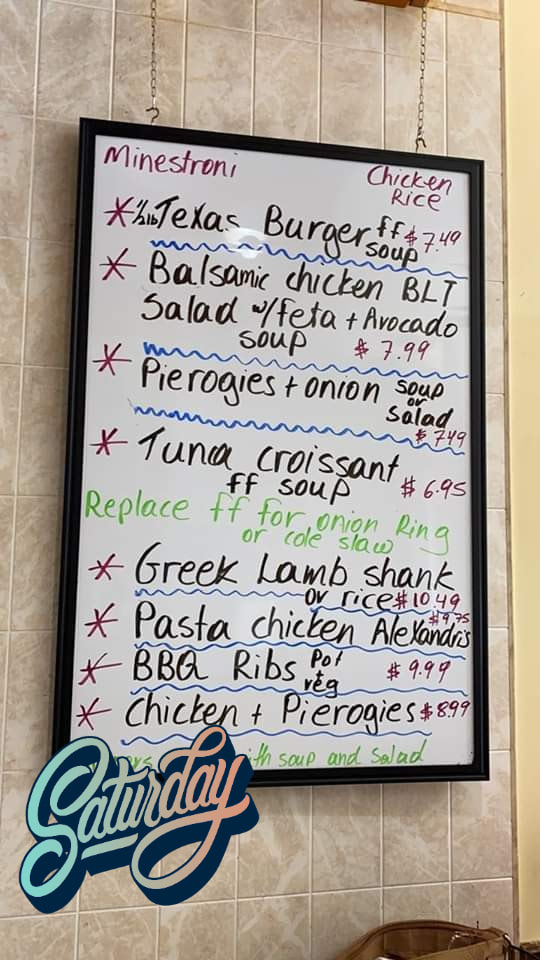 Minestroni
Chicken
Rice
* 1/2lb Texas Burger ff $7.49
soup
* Balsamic chicken BLT
Salad w/feta + Avocado
soup $ 7.99
* Pierogies + onion soup
or
Salad
$ 7.49
* Tuna croissant
ff soup $ 6.95
Replace ff for onion Ring
or cole slaw
* Greek Lamb shank
or rice $ 10.49
* Pasta chicken Alexandris $ 9.75
* BBQ Ribs Pot $ 9.99
+
veg
* Chicken + Pierogies $ 8.99
soup and Salad
Saturday